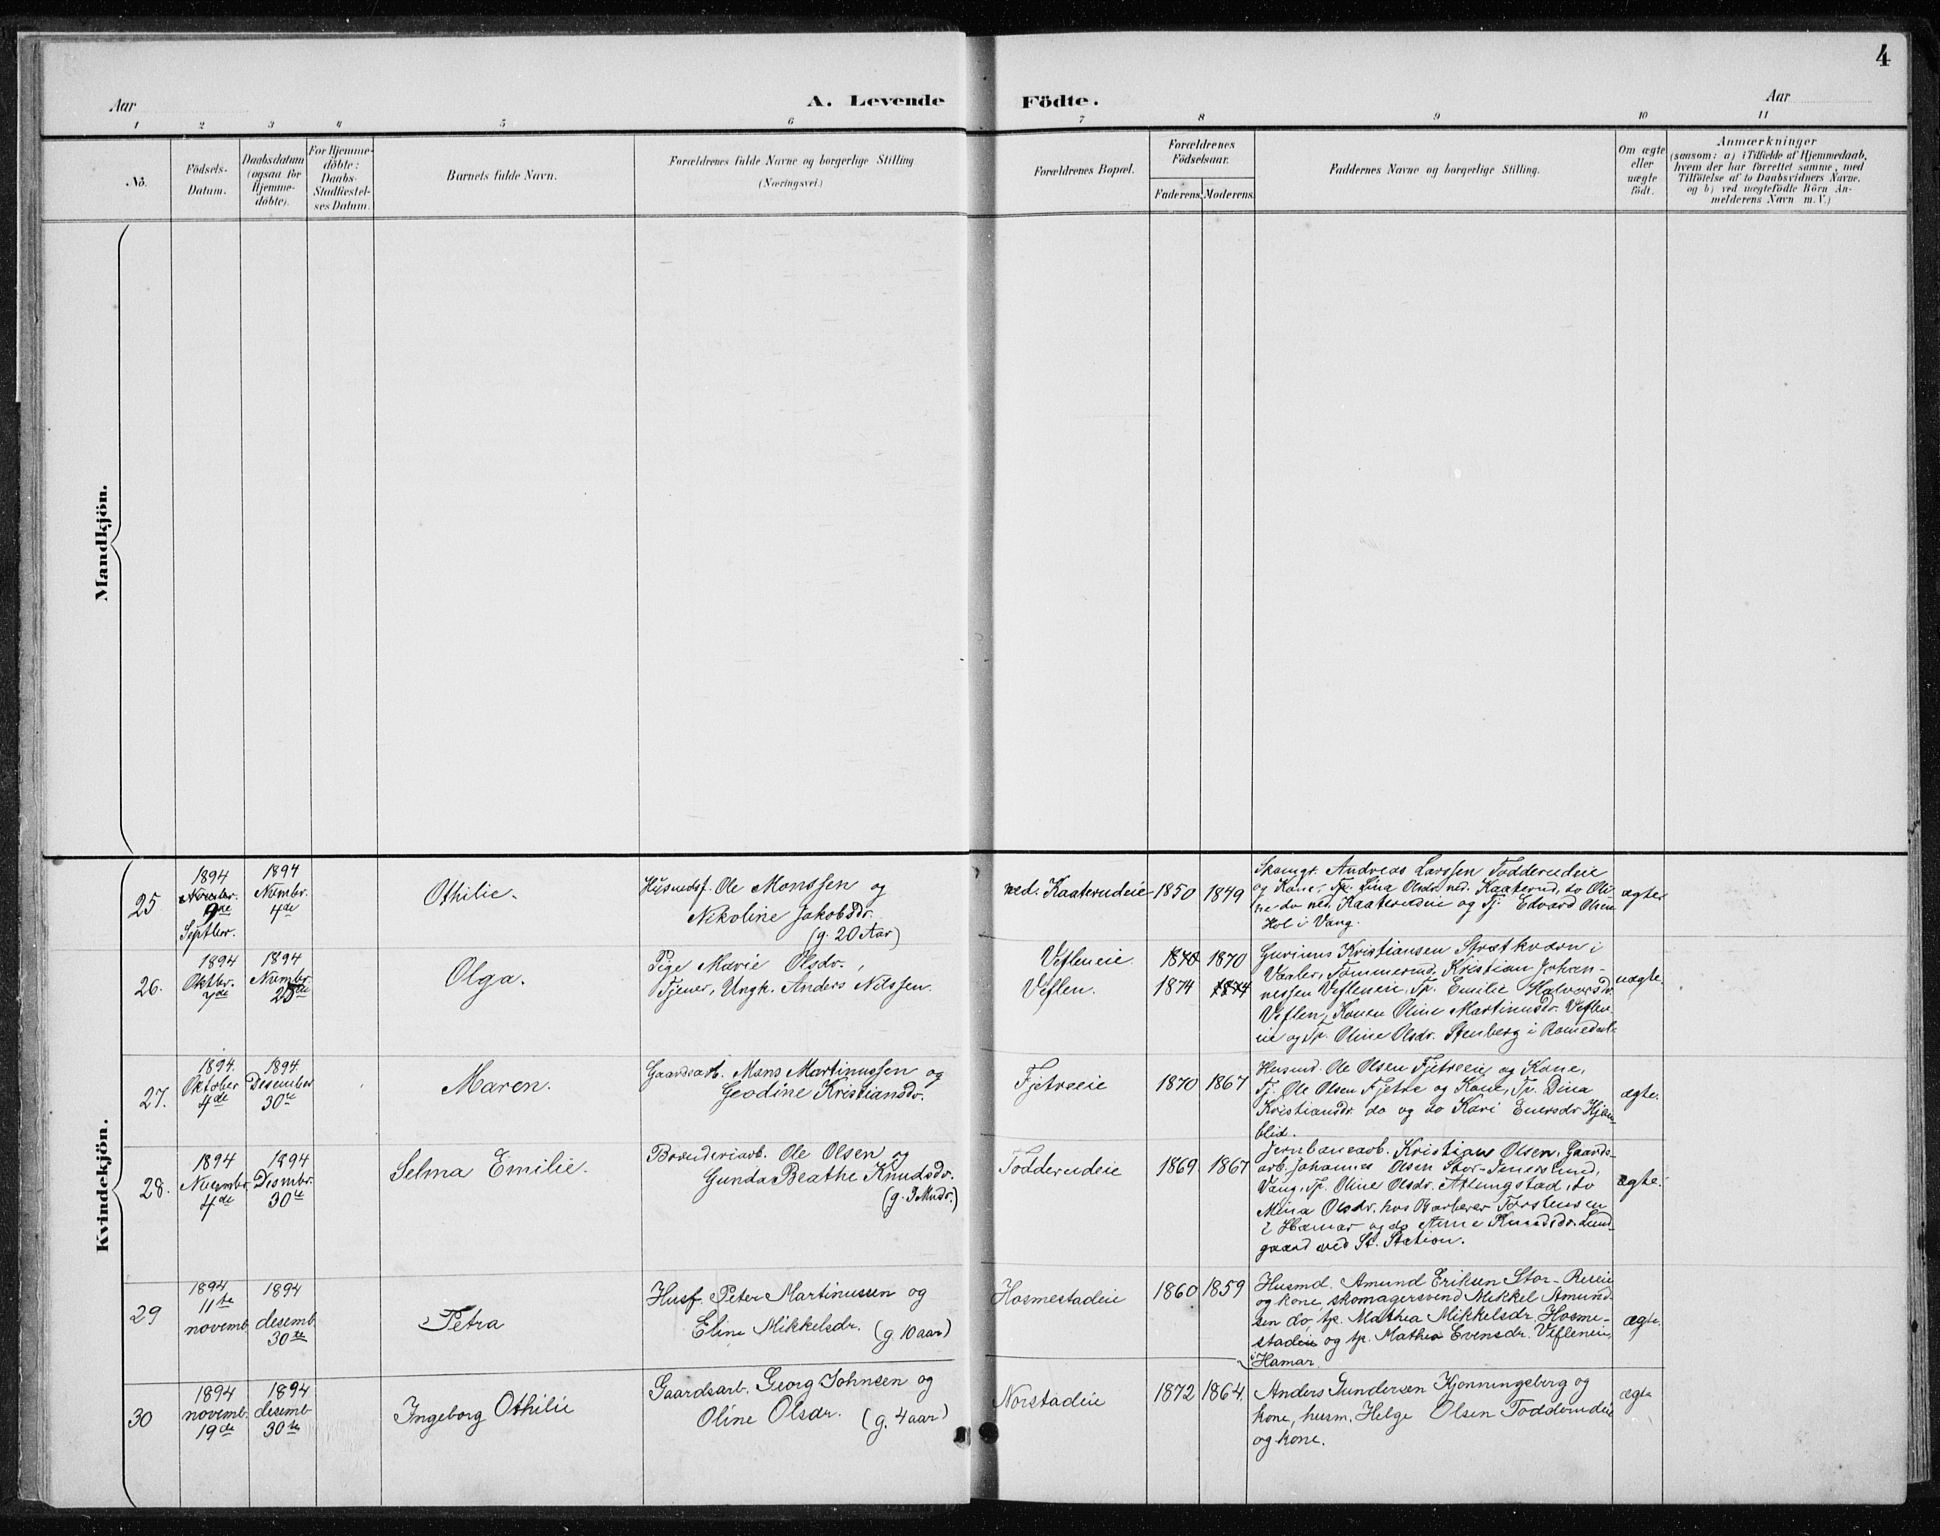 4
Aar
A. Levende
Födte.
Aar
1 2 3 4 5 6 7 8 9 10 11
No.
Födsels-
Datum.
Daabsdatum
(ogsaa for
Hjemme-
döbte).
For Hjemme-
döbte:
Daabs-
Stadfæstel-
ses Datum.
Barnets fulde Navn.
Forældrenes fulde Navne og borgerlige Stilling
(Næringsvei.)
Forældrenes Bopæl.
Forældrenes
Födselsaar.
Faderens.
Moderens.
Faddernes Navne og borgerlige Stilling.
Om ægte
eller
uægte
födt.
Anmærkninger
(saasom: a) i Tilfælde af Hjemmedaab,
hvem der har forrettet samme, med
Tilföielse af to Daabsvidners Navne,
og b) ved uægtefödte Börn An-
melderens Navn m.V.)
Mandkjön.
Kvindekjön.
25.
1894
9de
Septbr.
1894
Nvmbr.
4de
Othilie.
Husmdsf. Ole Monssen og
Nikoline Jakobsdr.
(g. 20 Aar)
ned. Kaaterudeie
1850
1849
Skomgr. Andreas Larssen Todderudeie
og Kone, Tp. Lina Olsdr. ned. Kaaterud, do Oli-
ne do ned. Kaaterudeie og Tj. Edvard Olsen
Hol i Vang.
ægte
26.
1894
Oktbr.
7de
1894
Nvmbr.
25de
Olga.
Pige Marie Olsdr.,
Tjener, Ungk. Anders Nilssen.
Vefleneie.
Veflen.
1870 1870
1874 1874
Kristiansen i
Vaaler, Tømmermd. Kristian Johan-
nessen Vefleneie, Tp. Emilie Halvorsdr.
Veflen, Konen Oline Martinusdr. Veflen-
eie og Tp. Oline Olsdr. Stenberg i Romedal.
uægte.
27.
1894.
Oktober
4de
1894
Desember
30te
Maren.
Gaardsarb. Mons Martinussen og
Geodine Kristiansdr.
Fjetreeie
1870
1867
Husmd. Ole Olsen Fjetreeie og Kone,
Tj. Ole Olsen Fjetre og Kone, Tp. Dina
Kristiansdr. do og do Kari Enersdr. Hjem-
blid.
ægte.
28.
1894
Nvembr.
4de
1894
Desmbr.
30te
Selma Emilie.
Brænderiarb. Ole Olsen og
Gunda Beathe Knudsdr.
(g. 9 Mndr.)
Todderudeie
1869
1867
Jernbanearb. Kristian Olsen, Gaards-
arb. Johannes Olsen Stor-
Vang, Tp. Oline Olsdr. Atlungstad, do
Mina Olsdr. hos Barberer Torstensen
i Hamar og do Anne Knudsdr. Lund-
gaard ved St. Station.
ægte.
29
1894
11te
novemb.
1894
desemb.
30te
Petra
Husf. Peter Martinussen og
Eline Mikkelsdr. (g 10 aar)
Hosmestadeie
1860
1859
Husmd. Amund Eriksen Stor-Reeie
og kone, skomagersvend Mikkel Amund-
sen do, tp. Mathea Mikkelsdr. Hosme-
stadeie og tp. Mathea Evensdr. Vefleneie,
i Hamar.
ægte.
30
1894
novemb.
19de
1894
desemb.
30te
Ingeborg Othilie
Gaardsarb. Georg Johnsen og
Oline Olsdr. (g. 4 aar)
Norstadeie
1872
1864.
Anders Gundersen Kjonningsberg og
kone, husm. Helge Olsen Todderudeie
og kone.
ægte